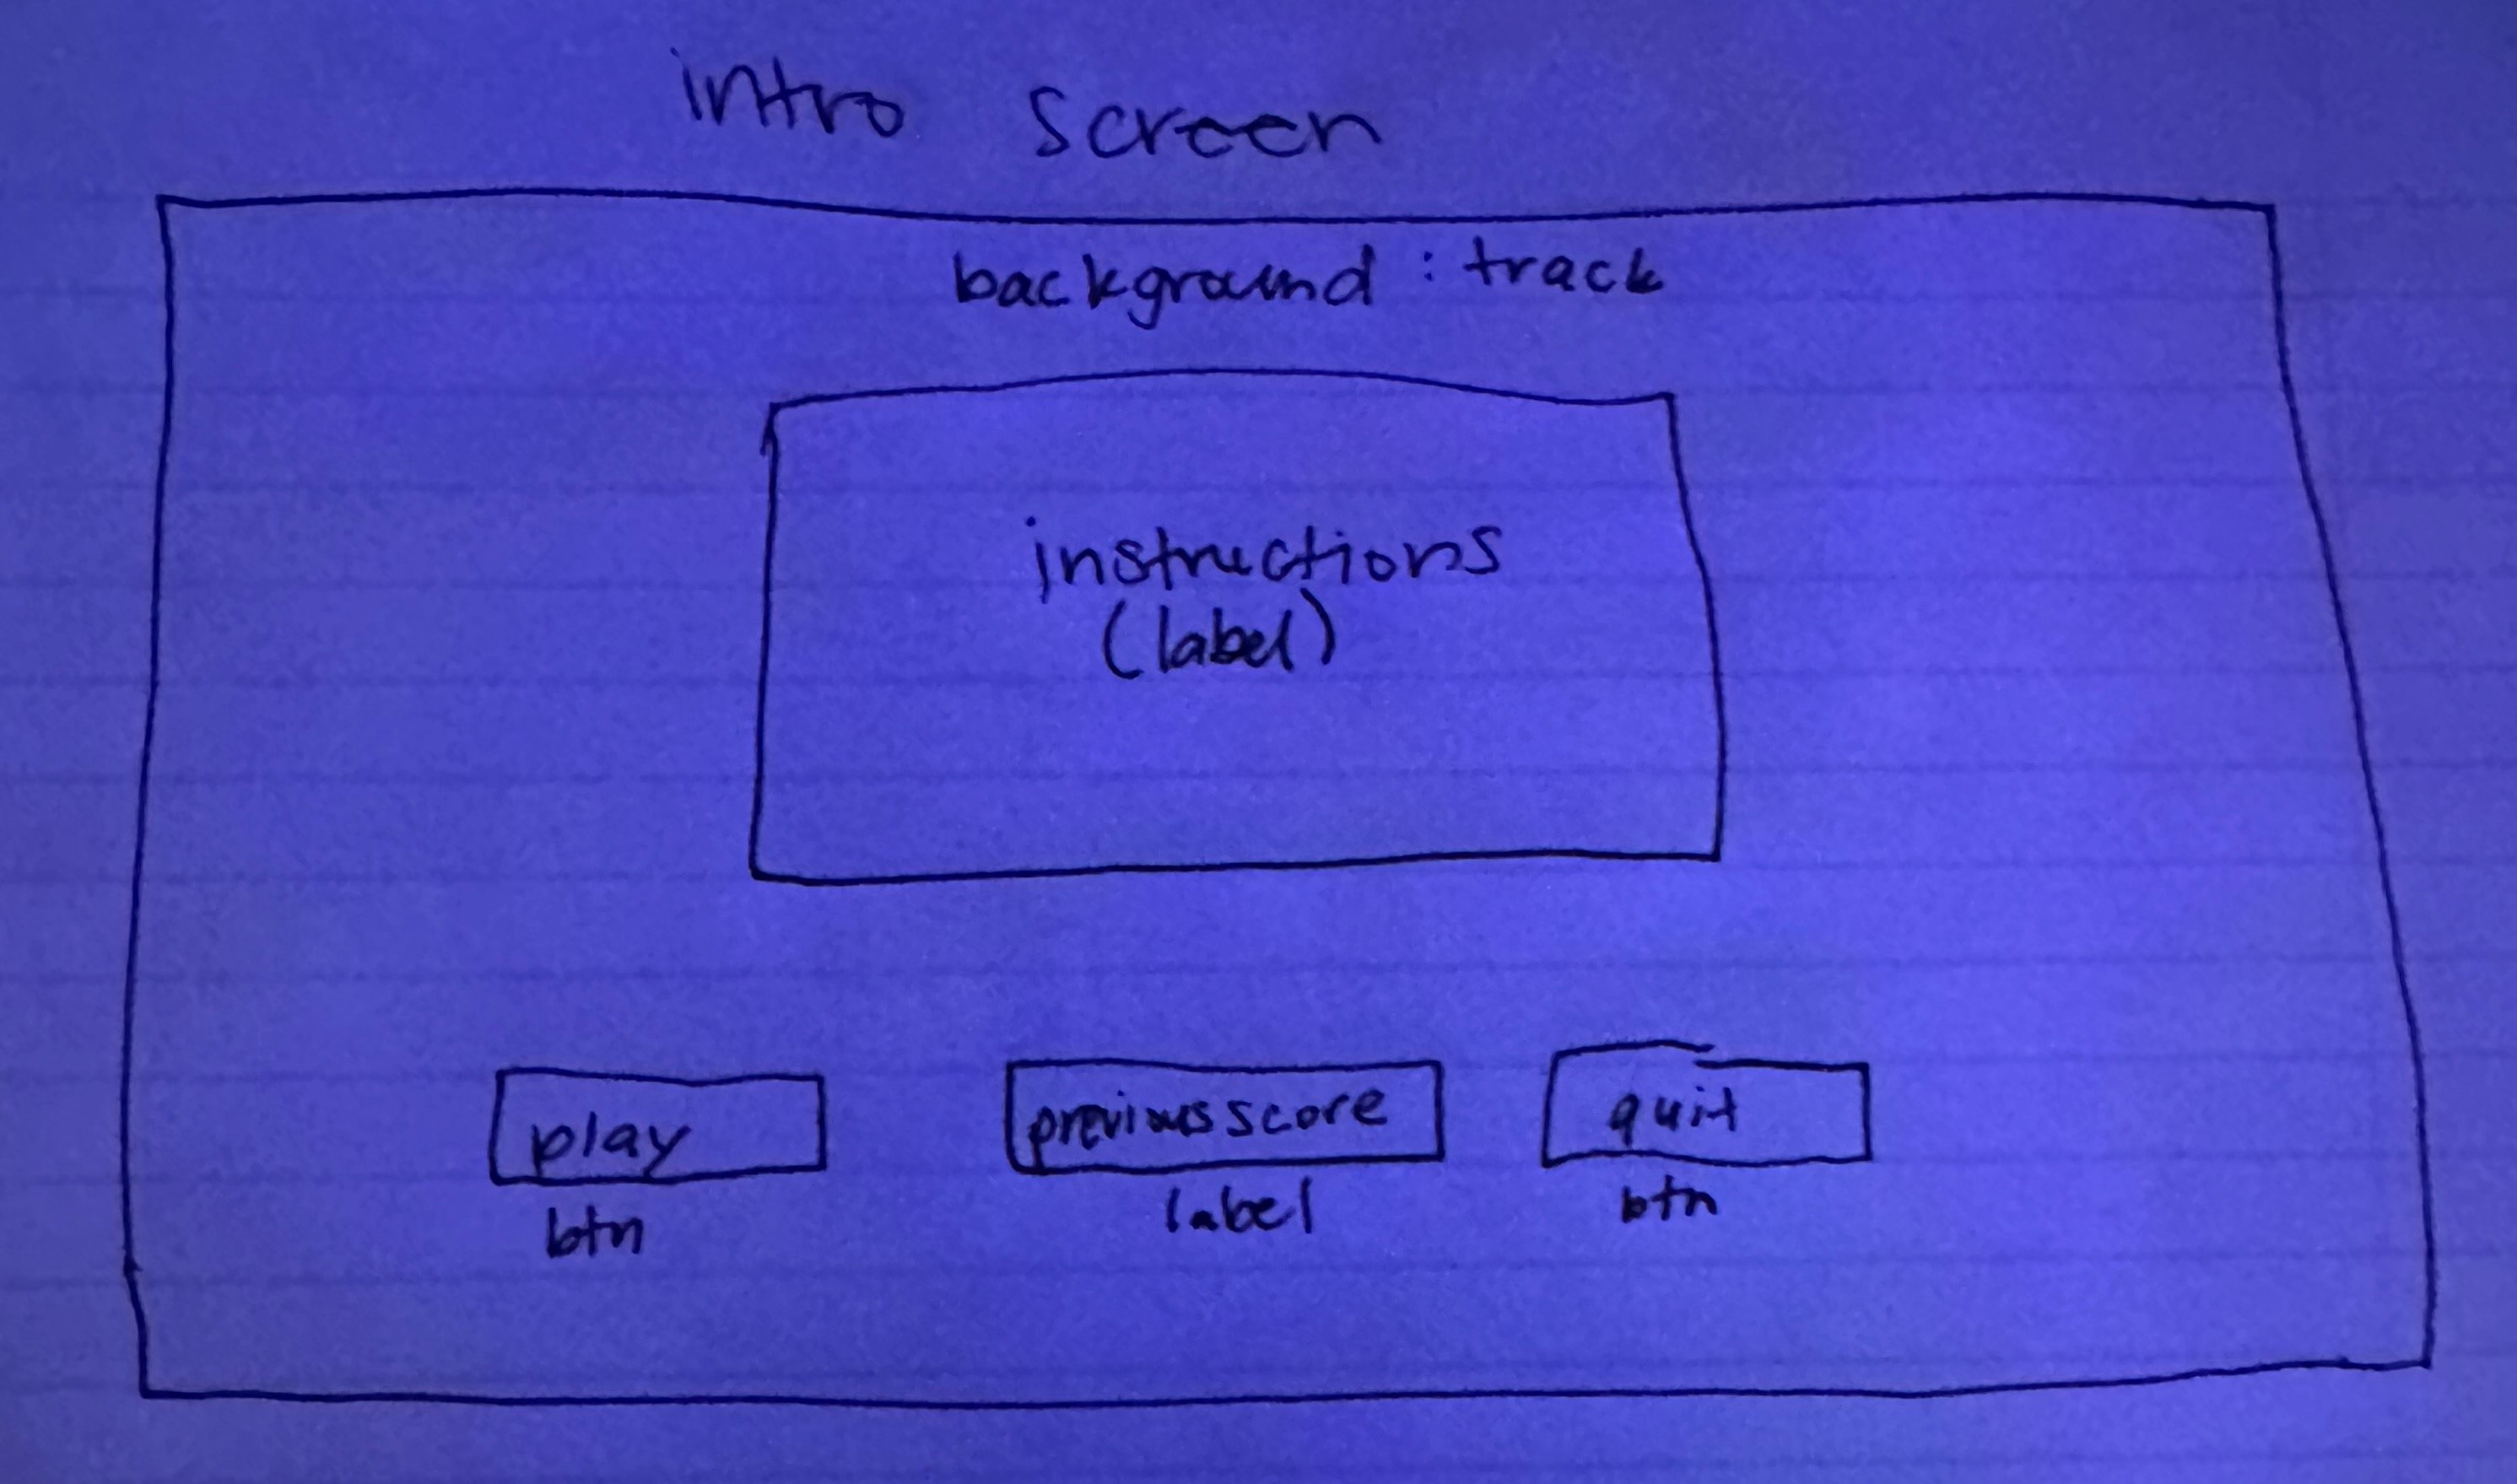 intro screen
background : track
instructions
(label)
play
previous score
quit
btn
label
btn